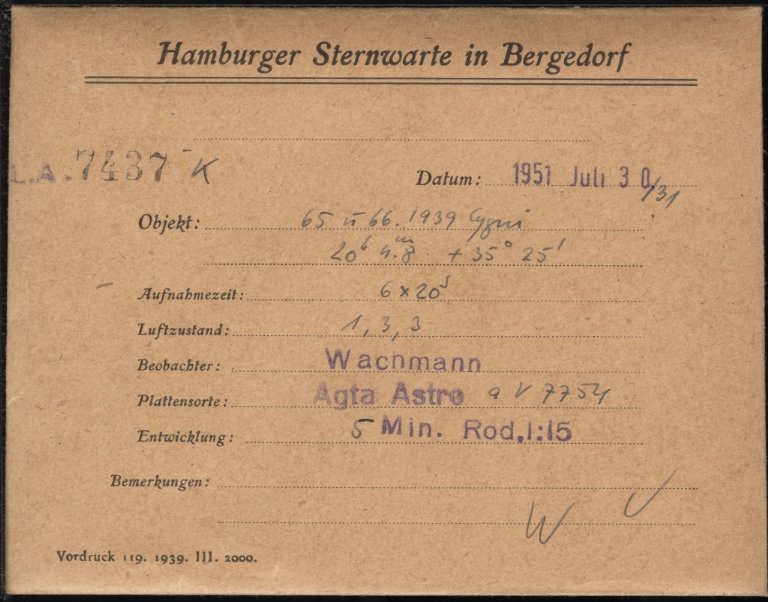 Hamburger Sternwarte in Bergedorf
L.A. 7437 - K
Datum: 1951 Juli 30/31
Objekt: 65 u 66. 1939 Cygni
20h 4.m8 + 35° 25'
Aufnahmezeit: 6 x 20s
Luftzustand: 1, 3, 3
Beobachter: Wachmann
Plattensorte: Agfa Astro a V 7754
Entwicklung: 5 Min. Rod. 1:15
Bemerkungen:
W
Vordruck 119. 1939. III. 2000.